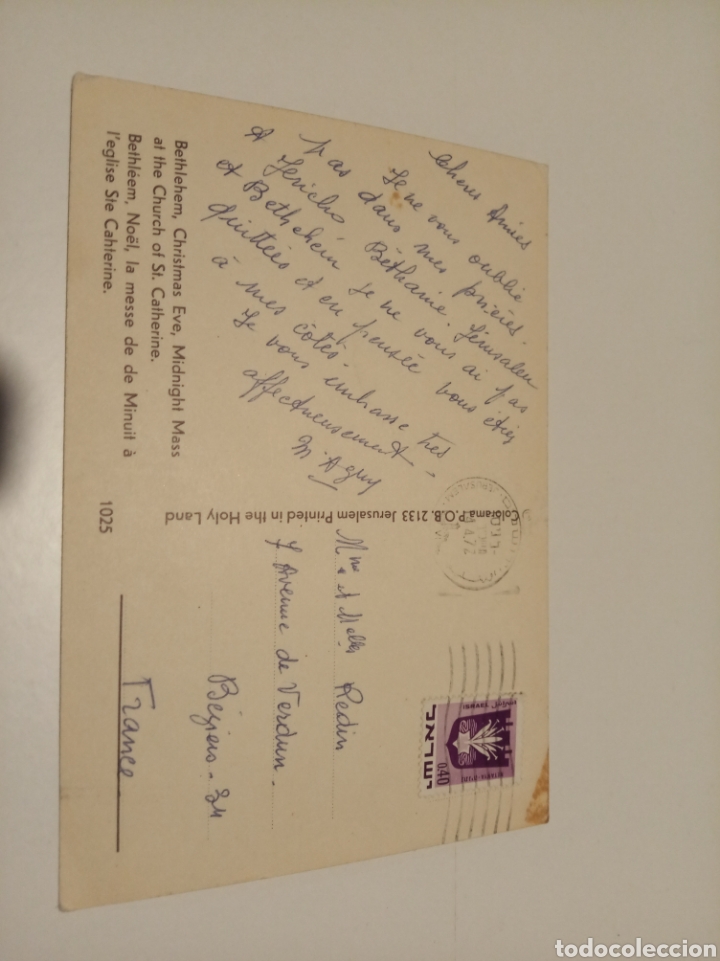 Chères Amies
Je ne vous oublie
pas dans mes prières.
A Jéricho, Béthanie. Jérusalem
et Bethehein je ne vous ai pas
quittées et en pensée vous étiez
à mes côtés.
Je vous embrasse très
affectueusement.
M. Aguy
Bethlehem, Christmas Eve, Midnight Mass
at the Church of St. Catherine.
Bethléem, Noël, la messe de de Minuit à
l'eglise Ste Cahterine.
1025
Colorama P.O.B. 2133 Jerusalem Printed in the Holy Land
ישראל
0.40
ISRAEL
Mme et Melles Redin
7 Avenue de Verdun.
Béziers. 34
France
todocoleccion.net